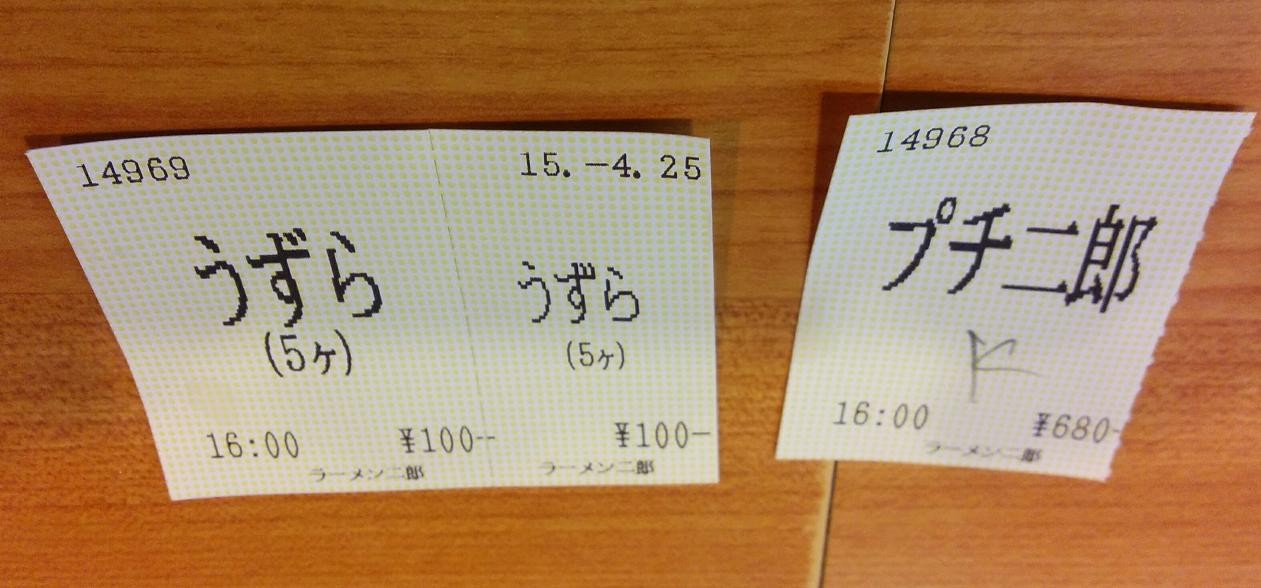 14969
15.-4.25
うずら
(5ヶ)
16:00 ¥100--
ラーメン二郎
うずら
(5ヶ)
¥100-
ラーメン二郎
14968
プチ二郎
16:00 ¥680-
ラーメン二郎